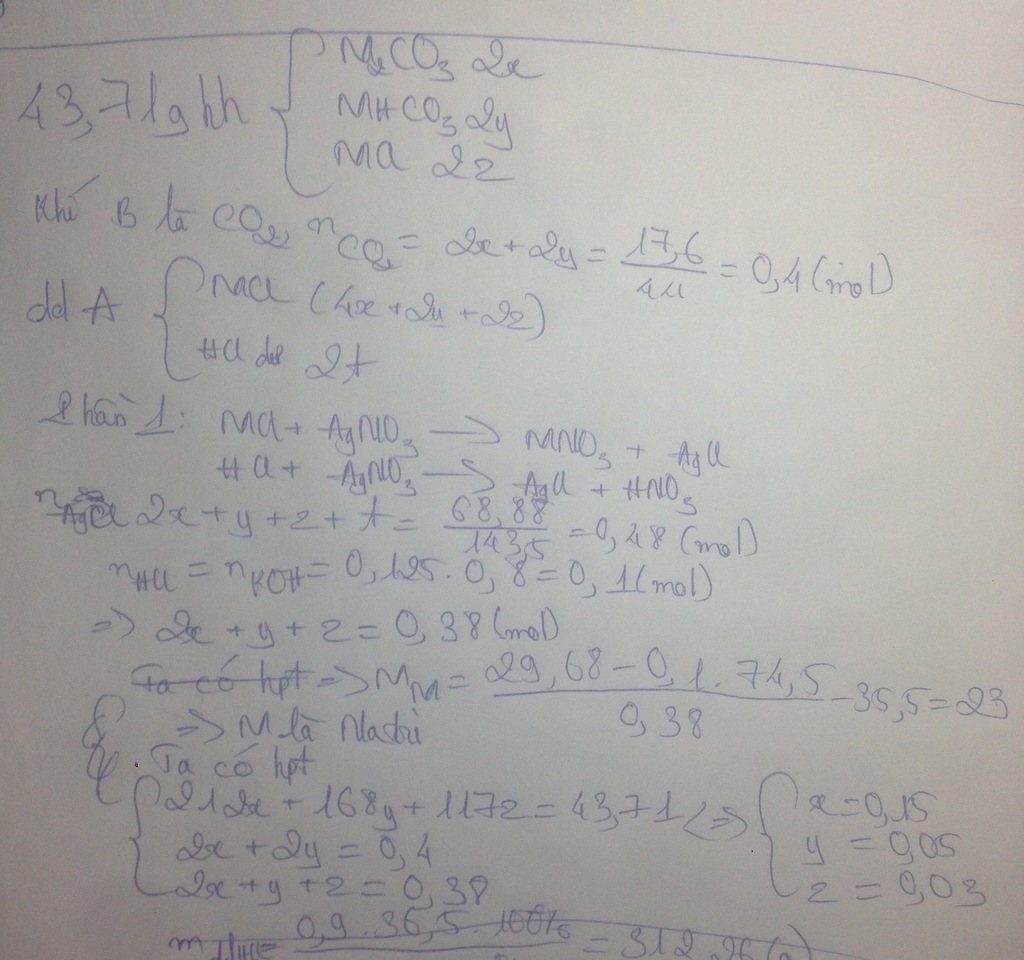 43,71g hh { M₂CO₃ 2x
MHCO₃ 2y
MCl 2z
Khí B là CO₂, nCO₂ = 2x + 2y = 17,6/44 = 0,4 (mol)
dd A { MCl (4x + 2y + 2z)
HCl dư 2t
Phần 1: MCl + AgNO₃ → MNO₃ + AgCl
HCl + AgNO₃ → AgCl + HNO₃
nAgCl 2x + y + z + t = 68,88/143,5 = 0,48 (mol)
nHCl = nKOH = 0,125 . 0,8 = 0,1 (mol)
=> 2x + y + z = 0,38 (mol)
Ta có hpt => M_M = (29,68 - 0,1 . 74,5)/0,38 - 35,5 = 23
=> M là Natri
. Ta có hpt
{ 212x + 168y + 117z = 43,71 <=> { x = 0,15
2x + 2y = 0,4 y = 0,05
2x + y + z = 0,38 z = 0,03
0,9 . 36,5 . 100% = 312,26 (g)